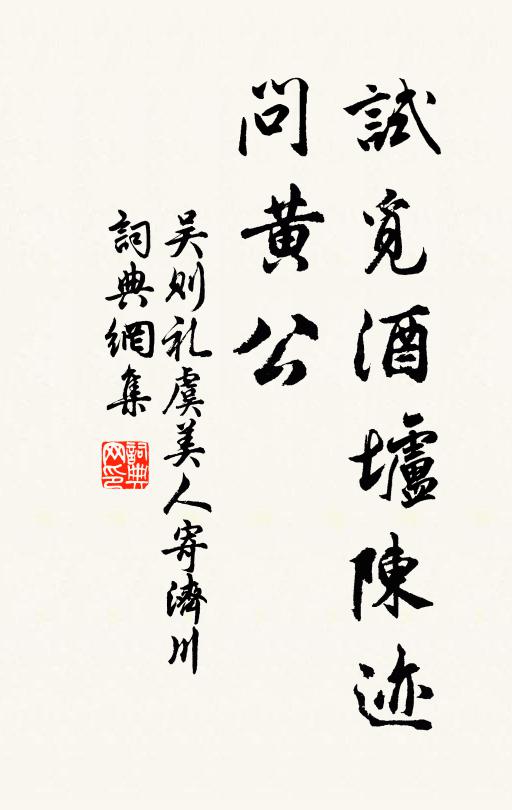 試覓酒壚陳迹
問黄公
吴则礼虞美人寄濟川
詞典網集
詞典
网印